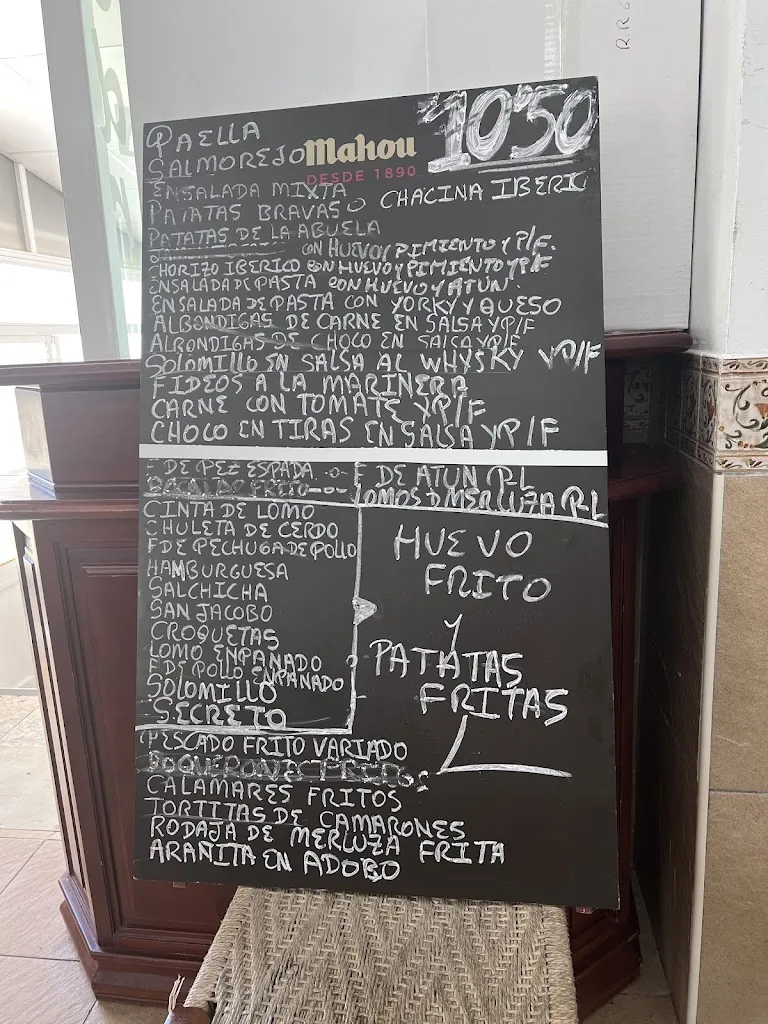 10'50
PAELLA
SALMOREJO
Mahou
DESDE 1890
ENSALADA MIXTA
PATATAS BRAVAS O CHACINA IBERI
PATATAS DE LA ABUELA
CON HUEVO Y PIMIENTO Y P/F.
CHORIZO IBERICO CON HUEVO Y PIMIENTO Y P/F
ENSALADA DE PASTA CON HUEVO Y ATUN.
ENSALADA DE PASTA CON YORK Y QUESO
ALBONDIGAS DE CARNE EN SALSA Y P/F
ALBONDIGAS DE CHOCO EN SALSA Y P/F
SOLOMILLO EN SALSA AL WHYSKY Y P/F
FIDEOS A LA MARINERA
CARNE CON TOMATE Y P/F
CHOCO EN TIRAS EN SALSA Y P/F
F DE PEZ ESPADA -o- F DE ATUN P-L
LOMOS D MERLUZA P-L
CINTA DE LOMO
CHULETA DE CERDO
F DE PECHUGA DE POLLO
HAMBURGUESA
SALCHICHA
SAN JACOBO
CROQUETAS
LOMO ENPANADO
F DE POLLO ENPANADO
SOLOMILLO
SECRETO
HUEVO
FRITO
Y
PATATAS
FRITAS
PESCADO FRITO VARIADO
CALAMARES FRITOS
TORTITAS DE CAMARONES
RODAJA DE MERLUZA FRITA
ARAÑITA EN ADOBO